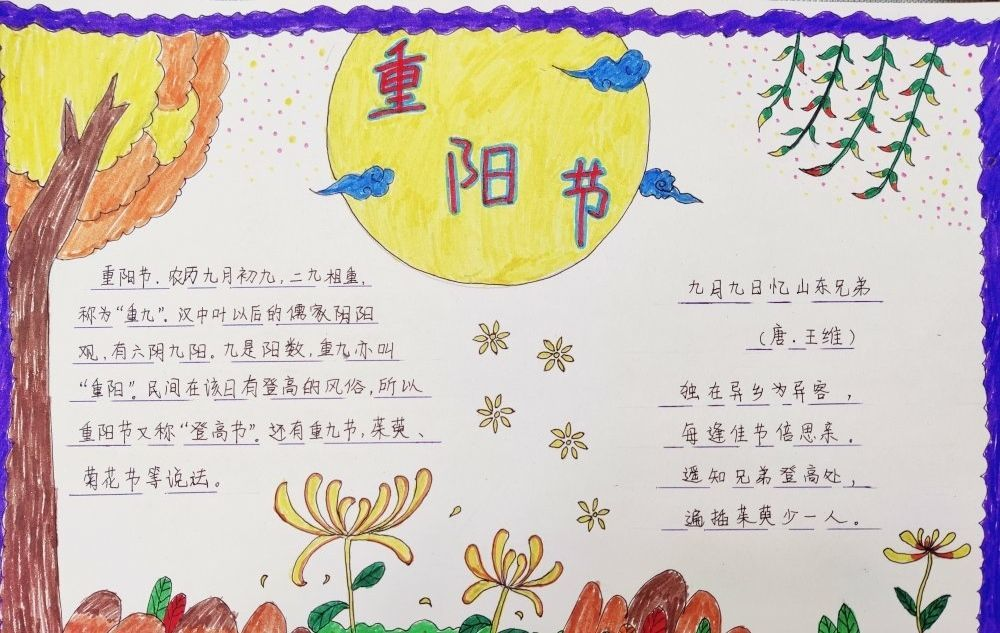 重阳节
重阳节，农历九月初九，二九相重，
称为“重九”。汉中叶以后的儒家阴阳
观，有六阴九阳。九是阳数，重九亦叫
“重阳”。民间在该日有登高的风俗，所以
重阳节又称“登高节”。还有重九节，茱萸、
菊花节等说法。
九月九日忆山东兄弟
（唐．王维）
独在异乡为异客，
每逢佳节倍思亲。
遥知兄弟登高处，
遍插茱萸少一人。